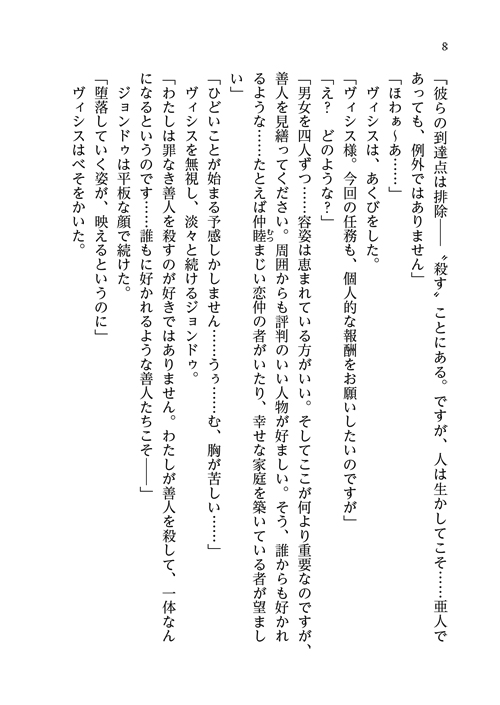 8
「彼らの到達点は排除――〝殺す〟ことにある。ですが、人は生かしてこそ……亜人で
あっても、例外ではありません」
「ほわぁ～あ……」
ヴィシスは、あくびをした。
「ヴィシス様。今回の任務も、個人的な報酬をお願いしたいのですが」
「え？　どのような？」
「男女を四人ずつ……容姿は恵まれている方がいい。そしてここが何より重要なのですが、
善人を見繕ってください。周囲からも評判のいい人物が好ましい。そう、誰からも好かれ
るような……たとえば仲睦まじい恋仲の者がいたり、幸せな家庭を築いている者が望まし
い」
「ひどいことが始まる予感しかしません……うぅ……む、胸が苦しい……」
ヴィシスを無視し、淡々と続けるジョンドゥ。
「わたしは罪なき善人を殺すのが好きではありません。わたしが善人を殺して、一体なん
になるというのです……誰もに好かれるような善人たちこそ――」
ジョンドゥは平板な顔で続けた。
「堕落していく姿が、映えるというのに」
ヴィシスはべそをかいた。